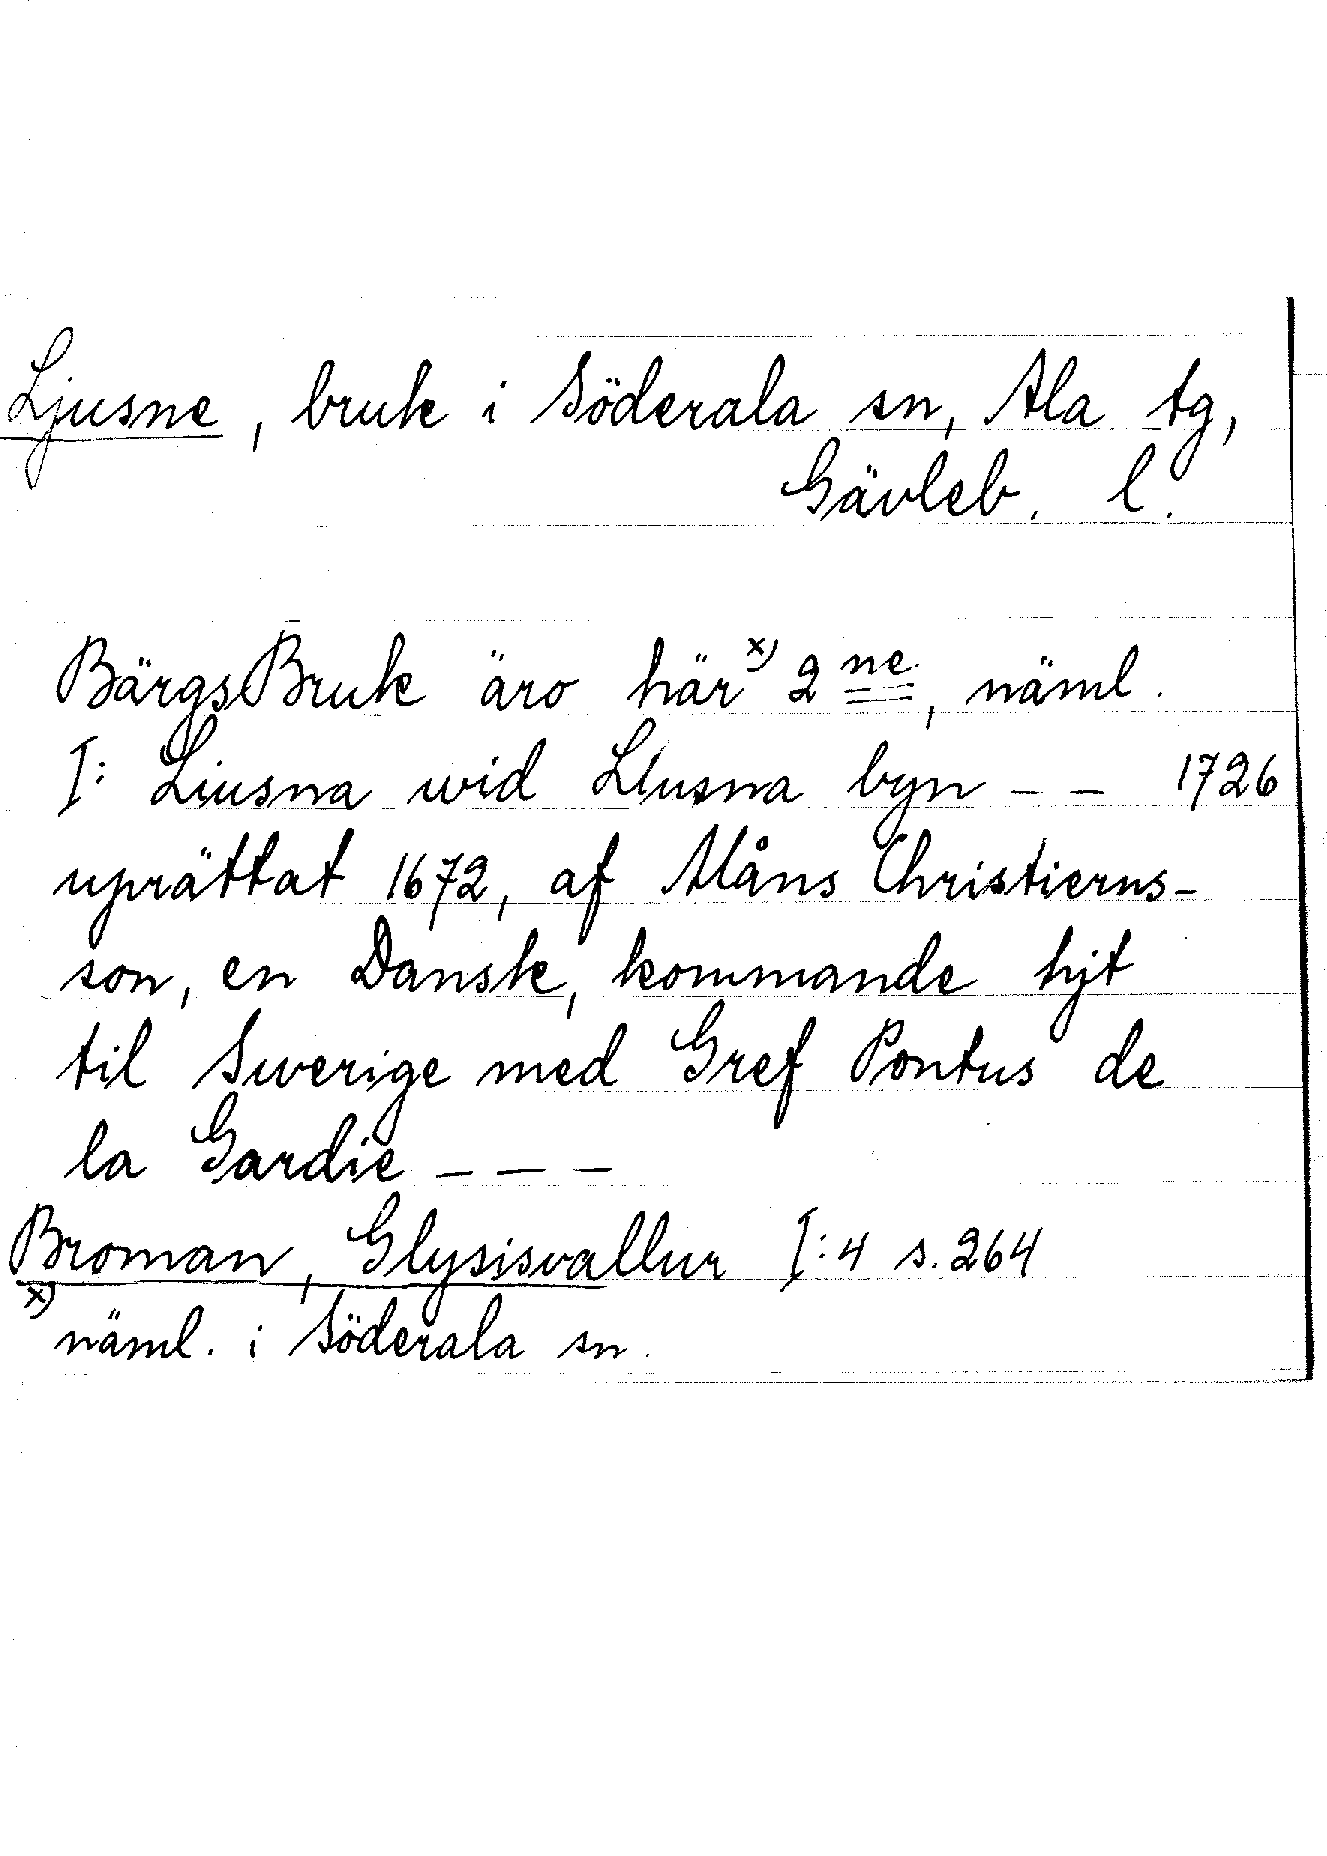 Ljusne, bruk i Söderala sn, Ala tg,
Gävleb. l.
BärgsBruk äro här x) 2 ne, näml.
I: Liusna wid Llusna byn – – 1726
uprättat 1672, af Måns Christierns-
son, en Dansk, kommande hjt
til Swerige med Gref Pontus de
la Gardie – – –
Broman, Glysisvallur I:4 s. 264
x) näml. i Söderala sn.